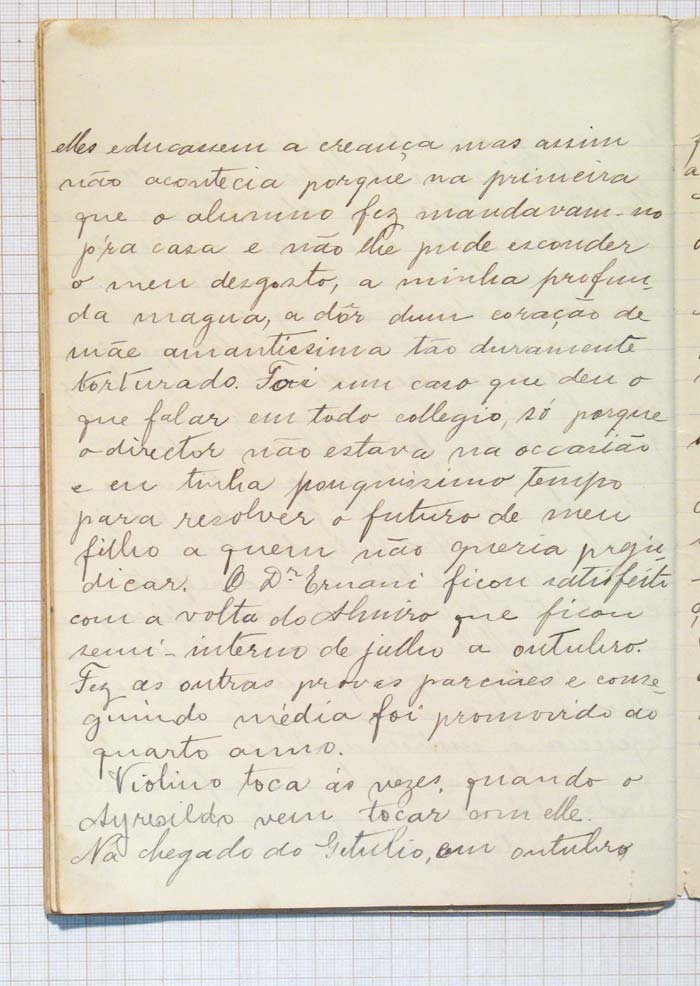 elles educassem a creança mas assim
não acontecia porque na primeira
que o alumno fez mandavam-no
p'ra casa e não lhe pude esconder
o meu desgosto, a minha profun-
da magua, a dôr dum coração de
mãe amantissima tão duramente
torturado. Foi um caso que deu o
que falar em todo collegio, só porque
o director não estava na occasião
e eu tinha pouquissimo tempo
para resolver o futuro de meu
filho a quem não queria preju
dicar. O Dr Ernani ficou satisfeito
com a volta do Almiro que ficou
semi-interno de julho a outubro.
Fez as outras provas parciaes e conse-
guindo média foi promovido ao
quarto anno.
Violino toca ás vezes, quando o
Ayresildo vem tocar com elle.
Na chegado do Getulio, em outubro